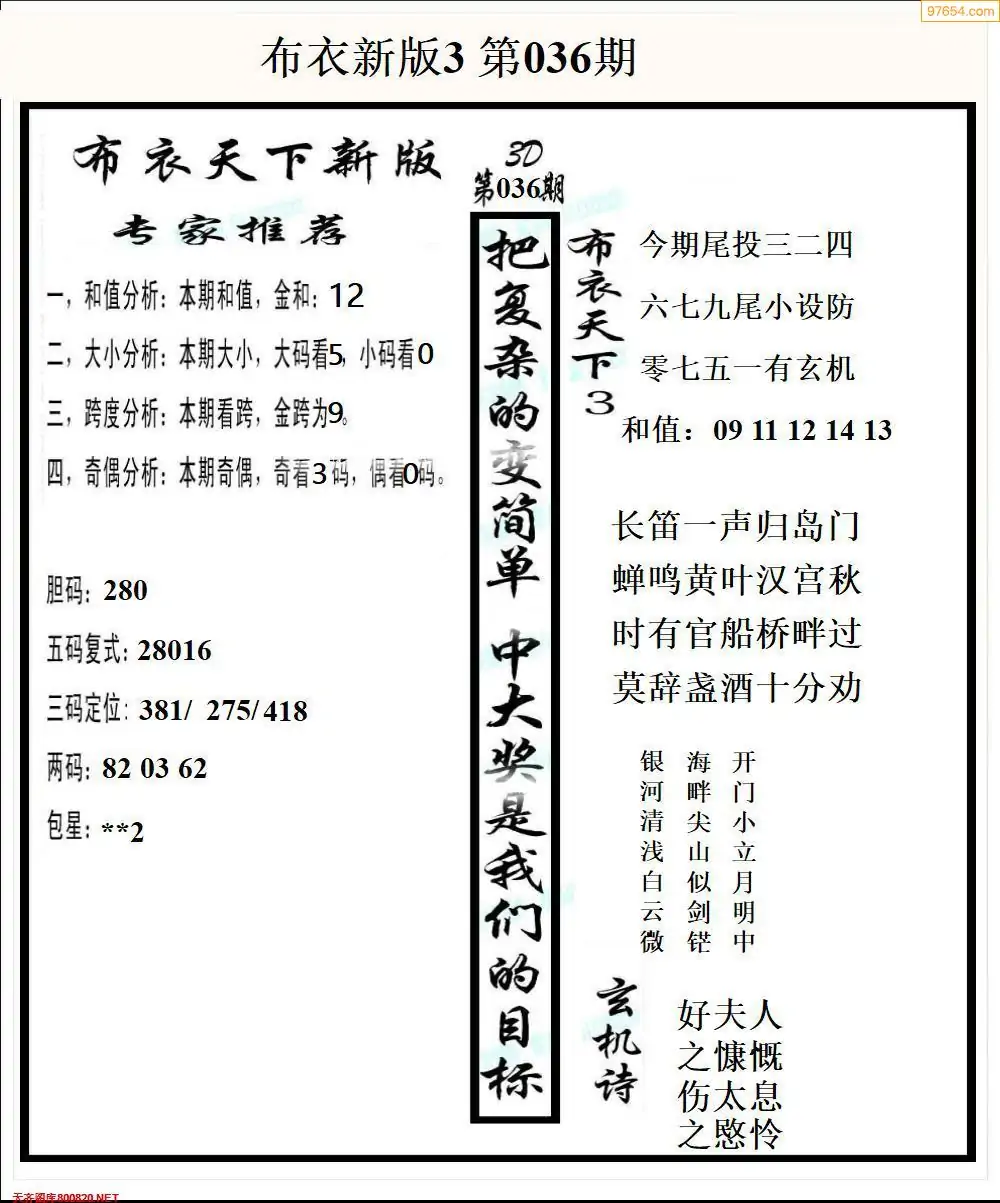 97654.com
布衣新版3 第036期
布衣天下新版
专家推荐
一，和值分析：本期和值，金和：12
二，大小分析：本期大小，大码看5，小码看0
三，跨度分析：本期看跨，金跨为9。
四，奇偶分析：本期奇偶，奇看3码，偶看0码。
胆码：280
五码复式：28016
三码定位：381/ 275/ 418
两码：82 03 62
包星：**2
3D
第036期
把复杂的变简单 中大奖是我们的目标
布衣天下3
今期尾投三二四
六七九尾小设防
零七五一有玄机
和值：09 11 12 14 13
长笛一声归岛门
蝉鸣黄叶汉宫秋
时有官船桥畔过
莫辞盏酒十分劝
开门小立月明中
海畔尖山似剑铓
银河清浅白云微
玄机诗
好夫人
之慷慨
伤太息
之愍怜
天齐图库800820.NET